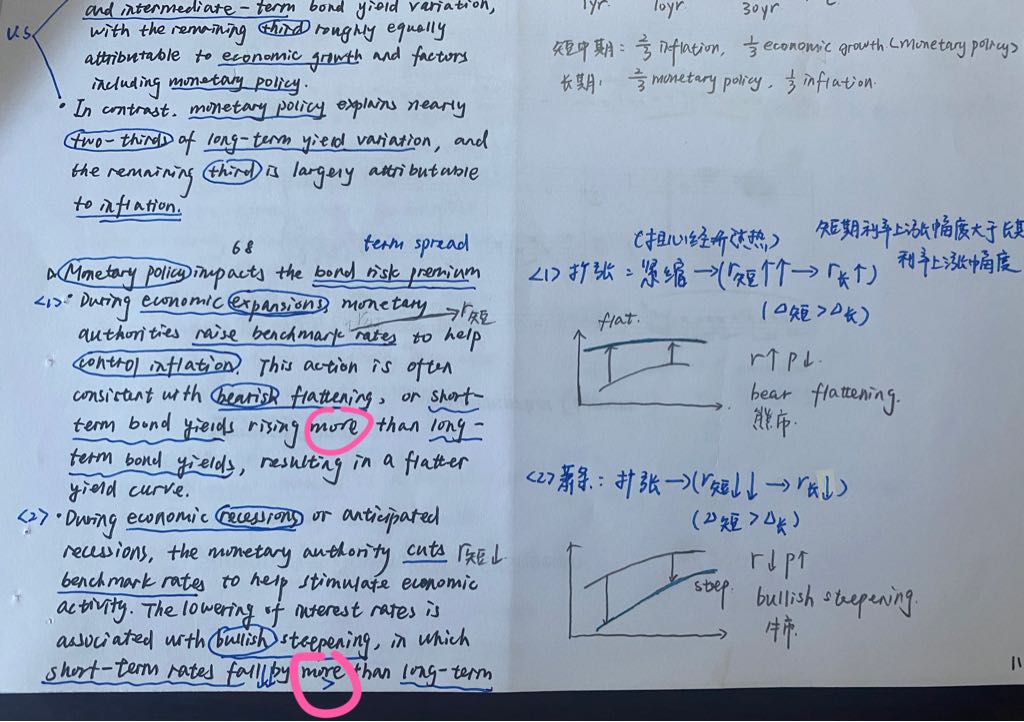 and intermediate-term bond yield variation,
with the remaining third roughly equally
attributable to economic growth and factors
including monetary policy.
U.S
· In contrast, monetary policy explains nearly
two-thirds of long-term yield variation, and
the remaining third is largely attributable
to inflation.
68
term spread
Monetary policy impacts the bond risk premium
<1> · During economic expansions, monetary
authorities raise benchmark rates to help
r短
control inflation. This action is often
consistent with bearish flattening, or short-
term bond yields rising more than long-
term bond yields, resulting in a flatter
yield curve.
<2> · During economic recessions or anticipated
recessions, the monetary authority cuts r短↓
benchmark rates to help stimulate economic
activity. The lowering of interest rates is
associated with bullish steepening, in which
short-term rates fall↓↓ by more than long-term
>
1yr. 10yr. 30yr
短中期: 2/3 inflation, 1/3 economic growth (monetary policy)
长期: 2/3 monetary policy, 1/3 inflation.
(担心经济过热)
短期利率上涨幅度大于长期
利率上涨幅度
<1> 扩张: 紧缩 → (r短↑↑ → r长↑)
(Δ短 > Δ长)
flat.
r↑ p↓.
bear flattening.
熊市.
<2> 萧条: 扩张 → (r短↓↓ → r长↓)
(Δ短 > Δ长)
steep.
r↓ p↑
bullish steepening.
牛市.
11